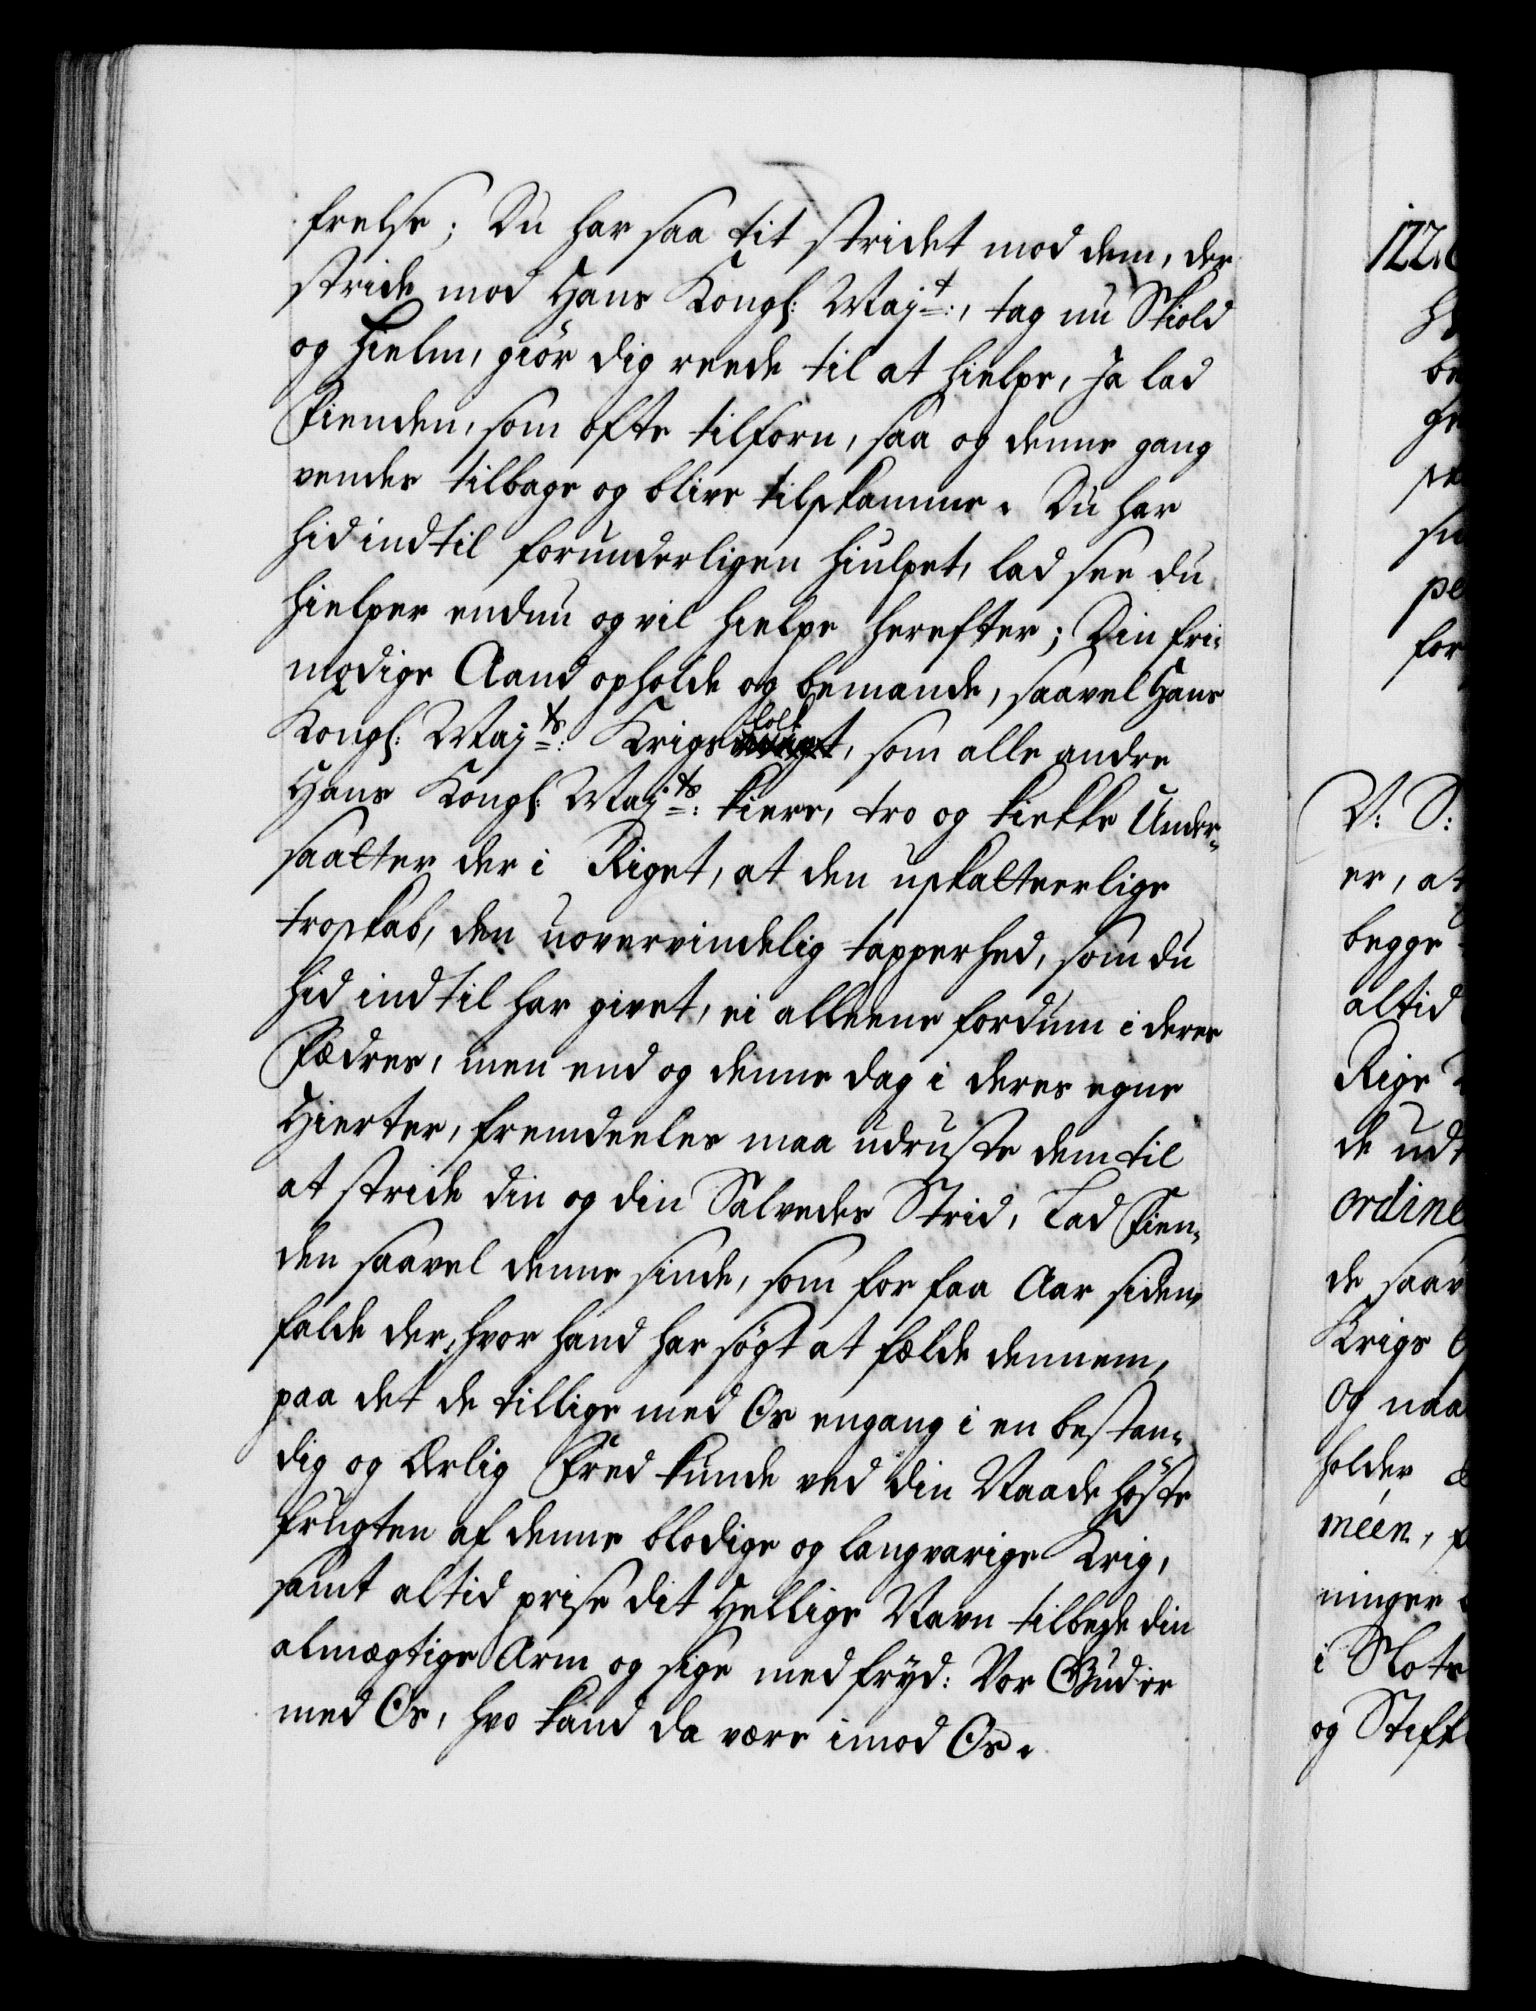 frelse; Du har saa tit stridet mod dem, der
stride mod Hans Kongl: Maj:t, tag nu Skiold
og Hielm, giør dig reede til at hielpe, Ja lad
Fienden, som ofte tilforn, saa og denne gang
vendes tilbage og blive tilskamme. Du har
hid indtil forunderligen hiulpet, lad see du
hielper endnu og vil hielpe herefter; Din fri-
modige Aand opholde og bemande, saavel Hans
Kongl: Maj:ts Krigsfolk, som alle andre
Hans Kongl: Maj:ts kiere, tro og kiekke Under-
saatter der i Riget, at den uskatteerlige
troskab, den uovervindelig tapperhed, som du
hid indtil har givet, ei alleene fordum i deres
Fædres, men end og denne dag i deres egne
Hierter, fremdeeles maa udruste dem til
at stride din og din Salvedes Strid, Lad Fien-
den saavel denne sinde, som for faa Aar siden,
falde der, hvor hand har søgt at fælde dennem,
paa det de tillige med Os engang i en bestan-
dig og Ærlig Fred kunde ved din Naade høste
frugten af denne blodige og langvarige Krig,
samt altid prise dit Hellige Navn tilbede din
almægtige Arm og sige med fryd: Vor Gud er
med Os, hvo kand da være imod Os.
122.
be
pe
for
V: S:
er, at
begge
altid
Rige
de udt
ordine
de saav
Krigs
og naa
holder
méen,
ninger
i Slots
og Stift